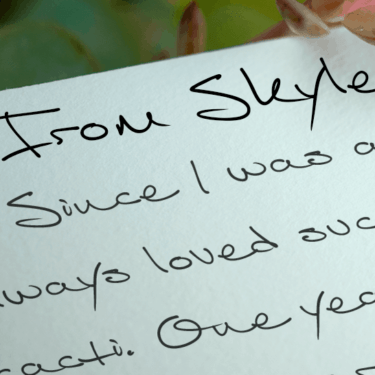 From Skyle
Since I was a
ways loved suc
acti. One yea